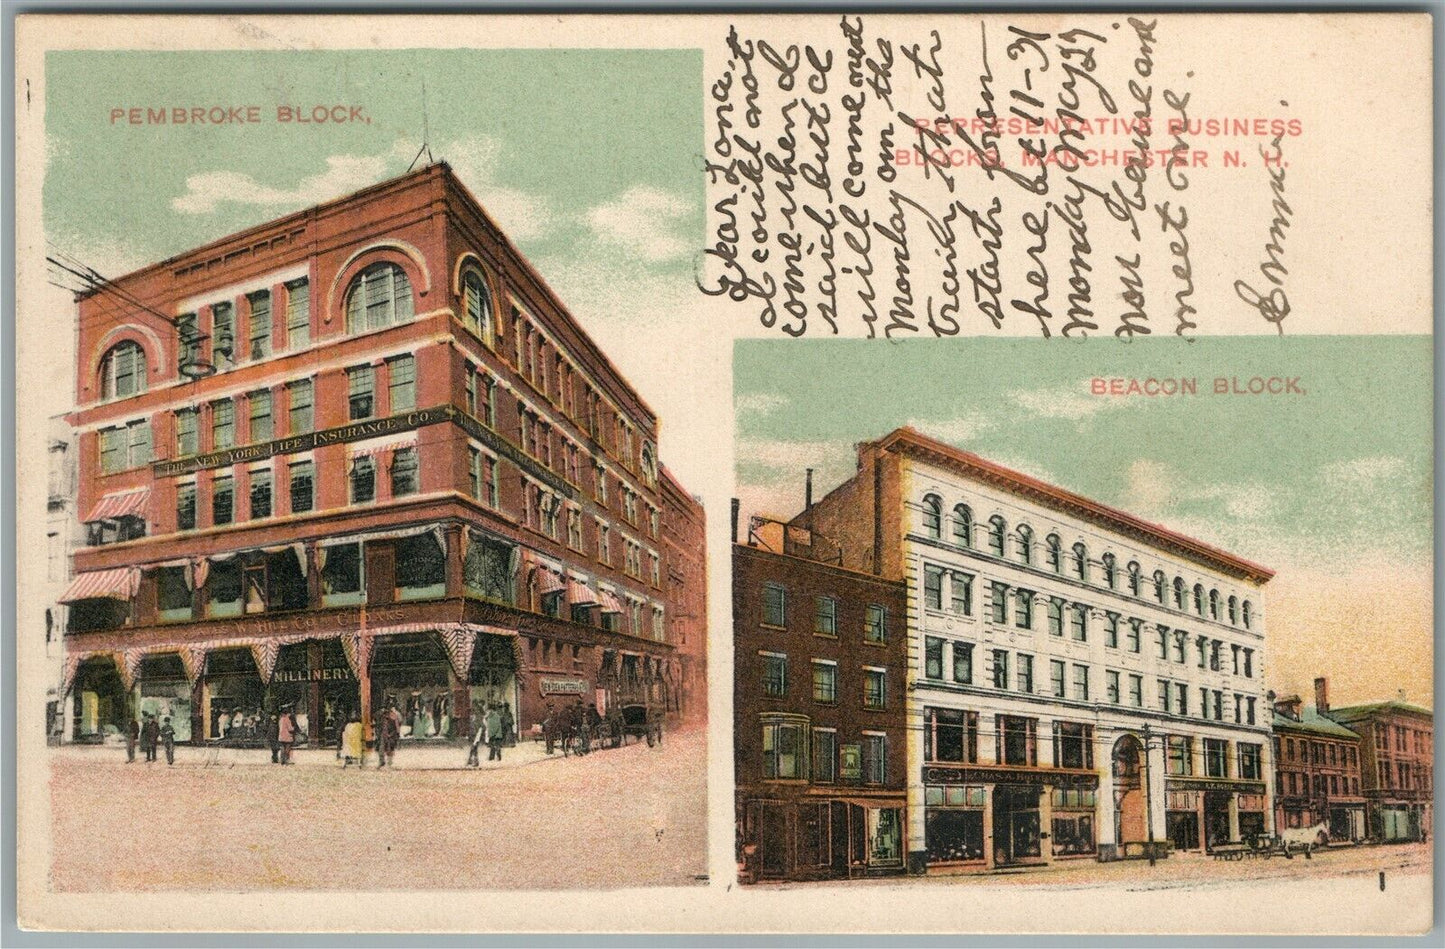 PEMBROKE BLOCK,
REPRESENTATIVE BUSINESS
BLOCKS, MANCHESTER N. H.
Dear Lona,
I could not
come when I
said but I
will come out
Monday on the
train that
starts from
here at 11-31
Monday May 29.
Now be sure and
meet me.
Emma.
BEACON BLOCK,
THE NEW YORK LIFE INSURANCE CO.
MILLINERY
CHAS. A.